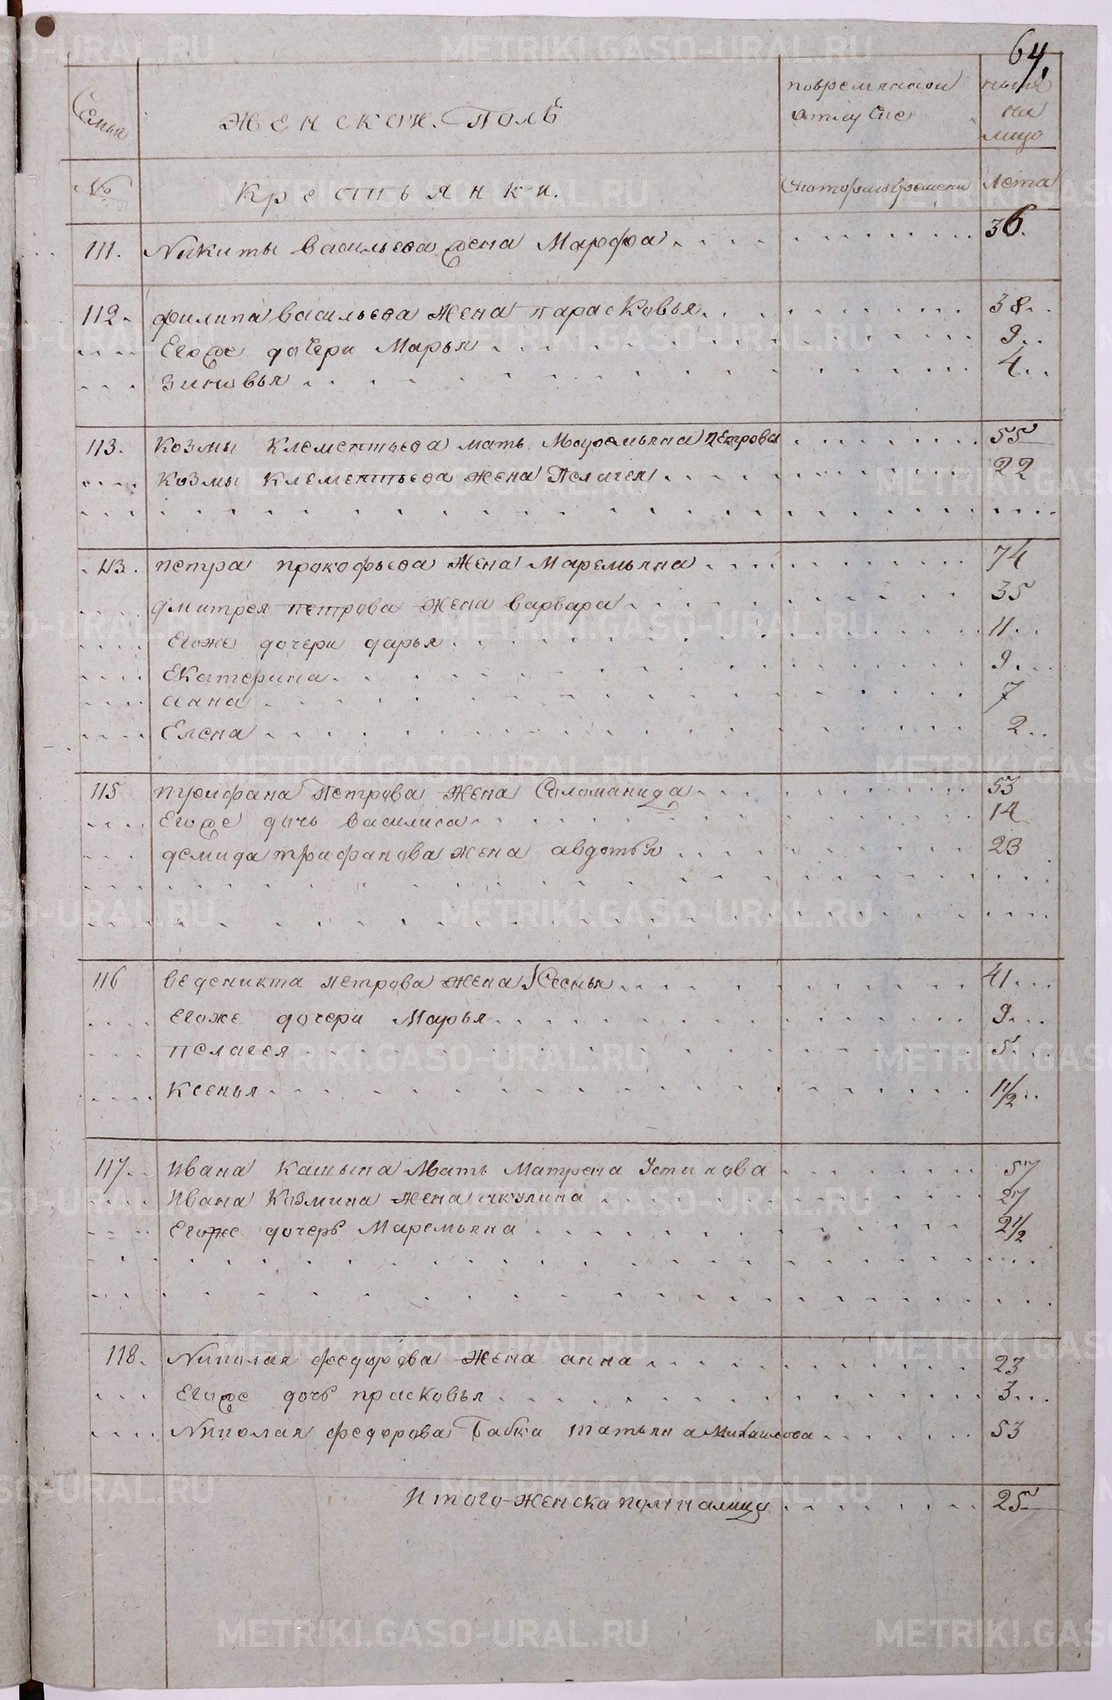 64.
Семьи
Женской Полъ
во временной отлучке
ныне на лицо
№
Крестьянки.
С которого времени
Лета
111. Никиты Васильева жена Марфа 36.
112. Филипа Васильева жена Парасковья 38
Егоже дочери Марья 9
Зиновья 4
113. Козмы Клементьева мать Маремьяна Петрова 55
Козмы Клементьева жена Пелагея 22
113. Петра Прокофьева жена Маремьяна 74
Дмитрея Петрова жена Варвара 35
Егоже дочери Дарья 11
Екатерина 9
Анна 7
Елена 2
115 Трифана Петрова жена Соломанида 53
Егоже дочь Василиса 14
Демида Трифанова жена Авдотья 23
116 Веденикта Петрова жена Ксенья 41
Егоже дочери Марья 9
Пелагея 5
Ксенья 1 1/2
117. Ивана мать Матрена Устинова 57
Ивана Козмина жена Акулина 27
Егоже дочерь Маремьяна 2 1/2
118. Николая Федорова жена Анна 23
Егоже дочь Прасковья 3
Николая Федорова бабка Татьяна Михайлова 53
Итого женска пола налицо 25
METRIKI.GASO-URAL.RU